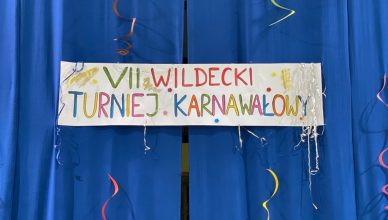 VII WILDECKI
TURNIEJ KARNAWAŁOWY